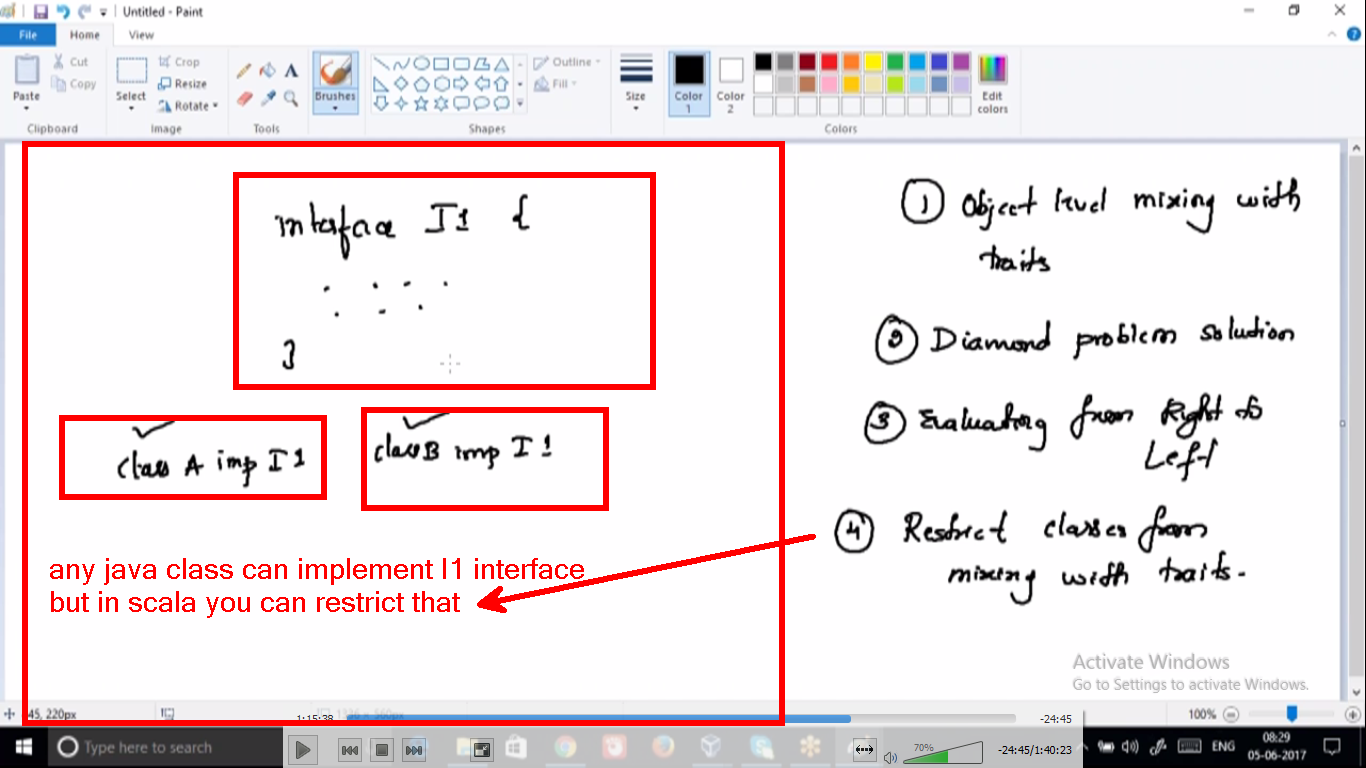 Untitled - Paint
File
Home
View
Paste
Cut
Copy
Clipboard
Select
Crop
Resize
Rotate
Image
Tools
Brushes
Shapes
Outline
Fill
Size
Color 1
Color 2
Edit colors
Colors
interface I1 {
}
class A imp I1
class B imp I1
any java class can implement I1 interface
but in scala you can restrict that
1 Object level mixing with
traits
2 Diamond problem solution
3 Evaluating from Right to
Left
4 Restrict classes from
mixing with traits.
Activate Windows
Go to Settings to activate Windows.
45, 220px
100%
1:15:38
-24:45
Type here to search
70%
-24:45/1:40:23
ENG
08:29
05-06-2017